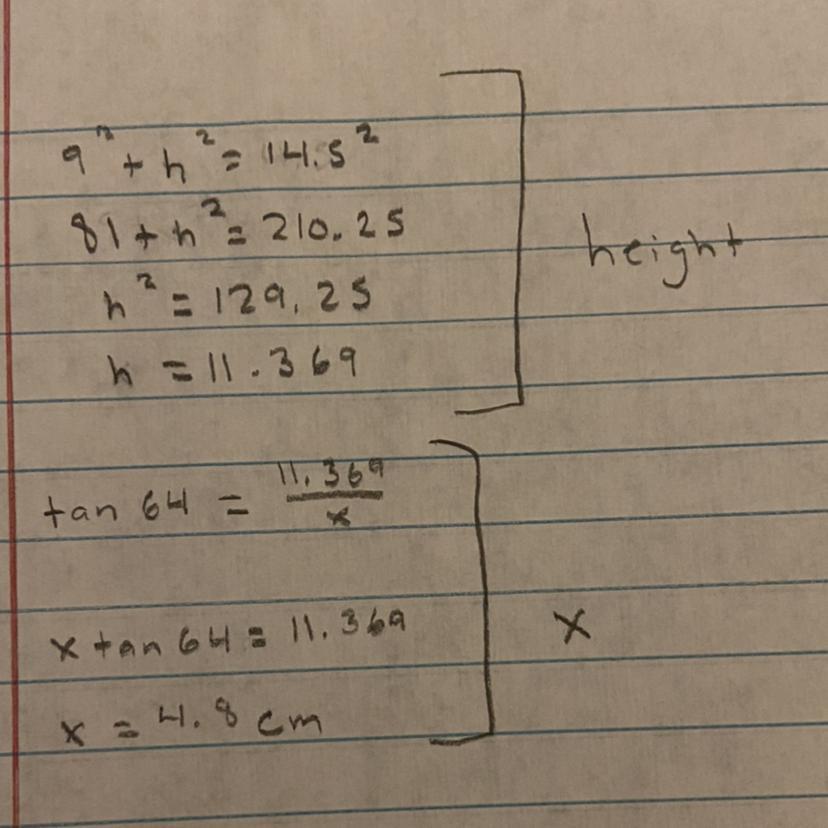 9² + h² = 14.5²
81 + h² = 210.25
h² = 129.25
h = 11.369
height
tan 64 = 11.369/x
x tan 64 = 11.369
x = 4.8 cm
x